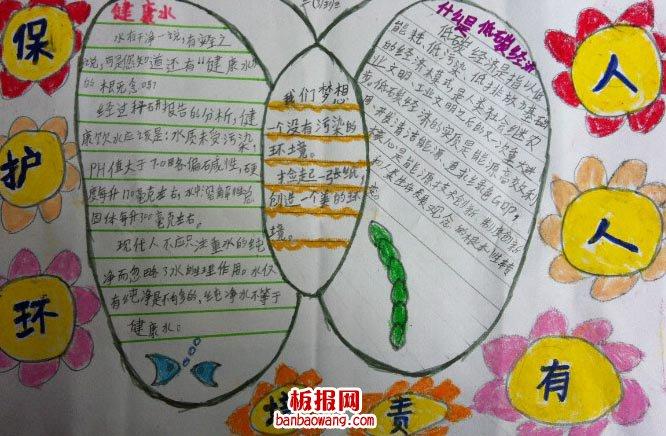 保
护
环
健康水
水有干净一说,有安全之
说,可是你知道还有“健康水”
的概念吗?
经过科研报告的分析,健
康饮水应该是:水质未受污染,
PH值大于7.0略偏碱性,硬
度每升170毫克左右,水中溶解性总
固体每升300毫克左右。
现代人不应只注重水的纯
净而忽略了水的生理作用。水仅
有纯净是不够的,纯净水不等于
健康水。
我们梦想
一个没有污染的
环境。
捡起一张纸
创造一个美的环
境。
什么是低碳经济
低碳经济是指以低
能耗、低污染、低排放为基础
的经济模式,是人类社会继农
业文明、工业文明之后的又一次重大进
步。低碳经济的实质是能源高效利
用、开发清洁能源、追求绿色GDP,
核心是能源技术创新、制度创新
和人类生存发展观念的根本性转
人
人
有
责
板报网
banbaowang.com